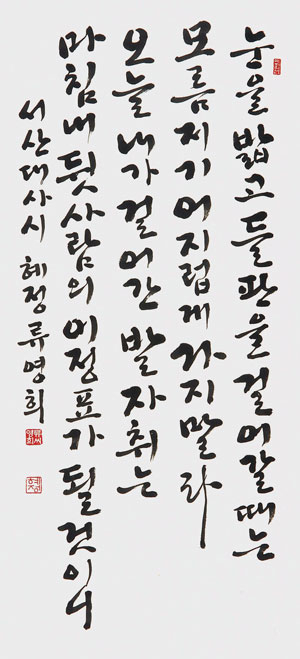 눈을 밟고 들판을 걸어갈 때는
모름지기 어지럽게 가지 말라
오늘 내가 걸어간 발자취는
마침내 뒷사람의 이정표가 될 것이니
서산대사 시 혜정 류영희